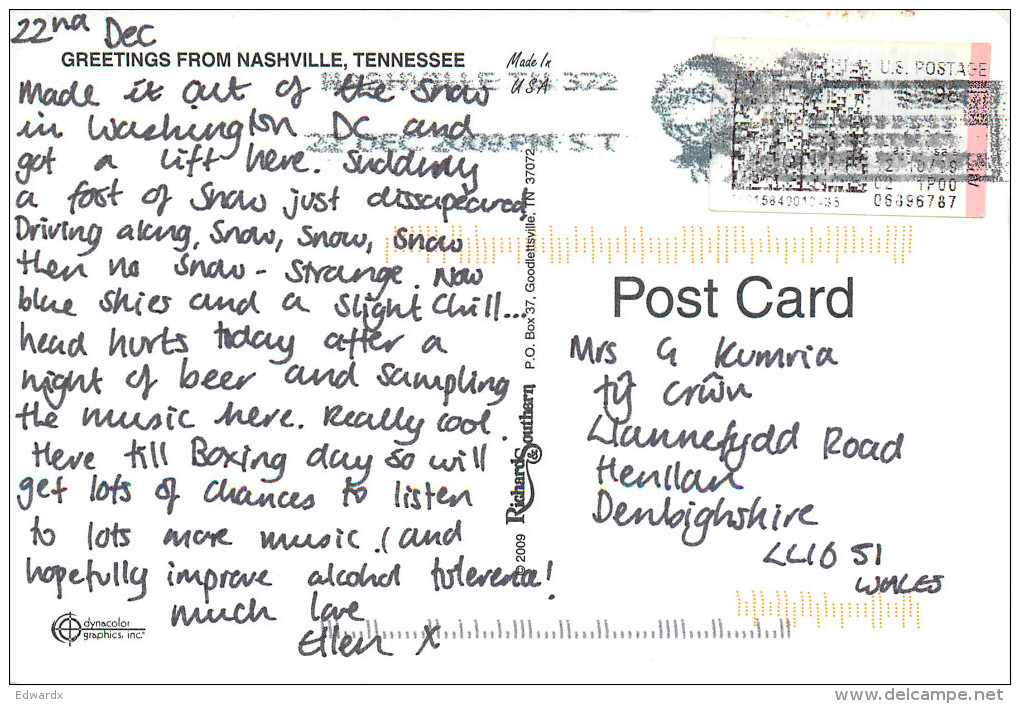 22nd Dec
GREETINGS FROM NASHVILLE, TENNESSEE
Made In
USA
Made it out of the snow
in Washington DC and
got a lift here. Suddenly
a foot of snow just dissapeared.
Driving along, snow, snow, snow
then no snow - strange. Now
blue skies and a slight chill...
head hurts today after a
night of beer and sampling
the music here. Really cool.
Here till Boxing day so will
get lots of chances to listen
to lots more music. (and
hopefully improve alcohol
much love
Ellen X
dynacolor
graphics, inc.
© 2009 Richards & Southern, P.O. Box 37, Goodlettsville, TN 37072
U.S. POSTAGE
1P00
06896787
Post Card
Mrs G Kumria
Tŷ Crŵn
Llannefydd Road
Henllan
Denbighshire
LL16 5
WALES
Edwardx
www.delcampe.net